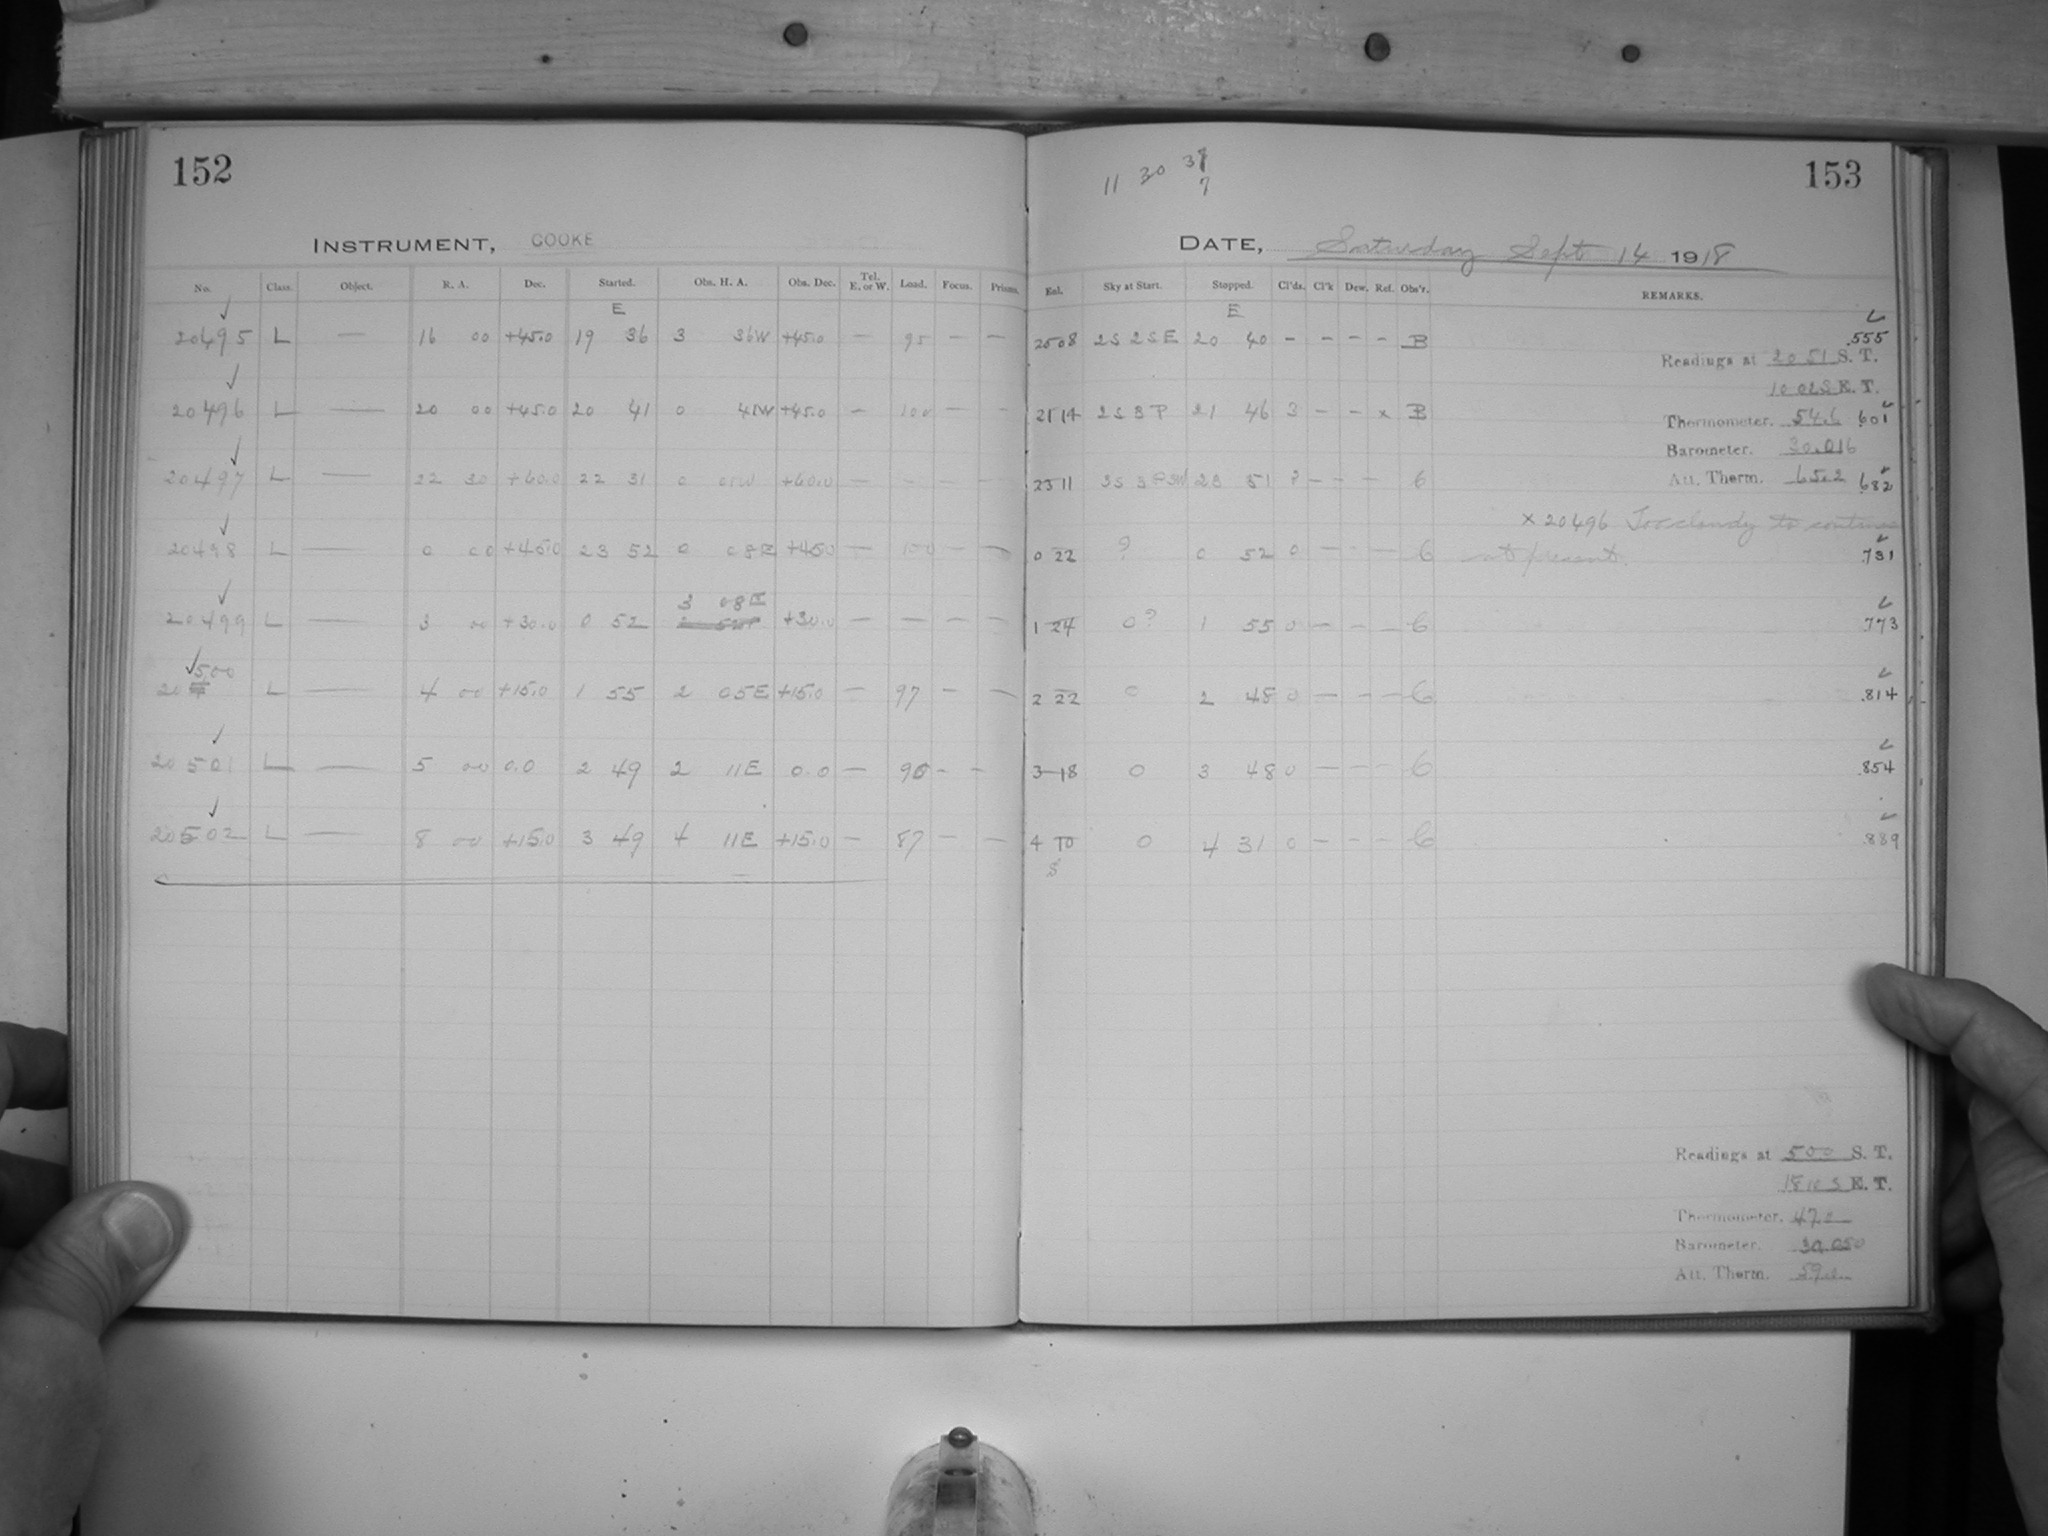 152
INSTRUMENT, COOKE
No. Class. Object. R. A. Dec. Started. Obs. H. A. Obs. Dec. Tel. E. or W. Load. Focus. Prisms.
E
20495 L — 16 00 +45.0 19 36 3 36W +45.0 — 95 — —
20496 L — 20 00 +45.0 20 41 0 41W +45.0 — 100 — —
20497 L — 22 30 +60.0 22 31 0 01W +60.0 — - - —
20498 L — 0 00 +45.0 23 52 0 08E +45.0 — 100 — —
3 08E
20499 L — 3 00 +30.0 0 52 +30.0 — — — —
500
20 L — 4 00 +15.0 1 55 2 05E +15.0 — 97 — —
20501 L — 5 00 0.0 2 49 2 11E 0.0 — 90 - -
20502 L — 8 00 +15.0 3 49 4 11E +15.0 — 87 — —
153
11 30 37
7
DATE, Saturday Sept 14 1918
Eql. Sky at Start. Stopped. Cl'ds. Cl'k Dew. Ref. Obs'r. REMARKS.
E
2008 2S 2SE 20 40 - - - - B .555
Readings at 20 51 S. T.
10 02S E. T.
21 14 2S 3P 21 46 3 - - x B Thermometer. 54.6 .601
Barometer. 30.016
23 11 23 51 ? - - - 6 Att. Therm. 65.2 .682
x 20496 Too cloudy to continue
0 22 ? 0 52 0 - - - 6 at present. .731
1 24 0? 1 55 0 - - - 6 .773
2 22 0 2 48 0 - - - 6 .814
3 18 0 3 48 0 - - - 6 .854
4 10 0 4 31 0 - - - 6 .889
S
Readings at 5 00 S. T.
18 10 S E. T.
Thermometer. 47.0
Barometer. 30.050
Att. Therm.